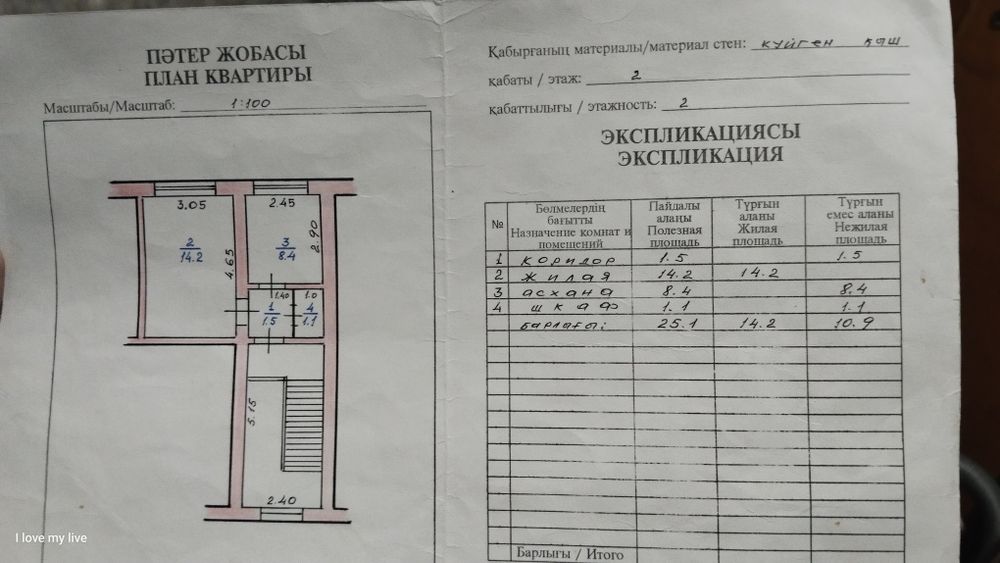 ПӘТЕР ЖОБАСЫ
ПЛАН КВАРТИРЫ
Масштабы/Масштаб: 1:100
3.05
2.45
2
14.2
4.65
3
8.4
2.90
1.40
1.0
1
1.5
4
1.1
5.15
2.40
I love my live
Қабырғаның материалы/материал стен: күйген қаш
қабаты / этаж: 2
қабаттылығы / этажность: 2
ЭКСПЛИКАЦИЯСЫ
ЭКСПЛИКАЦИЯ
№ Бөлмелердің бағытты Назначение комнат и помешений Пайдалы алаңы Полезная площадь Түрғын аланы Жилая площадь Түрғын емес аланы Нежилая площадь
1 коридор 1.5 1.5
2 жилая 14.2 14.2
3 асхана 8.4 8.4
4 шкаф 1.1 1.1
барлағы: 25.1 14.2 10.9
Барлығы / Итого